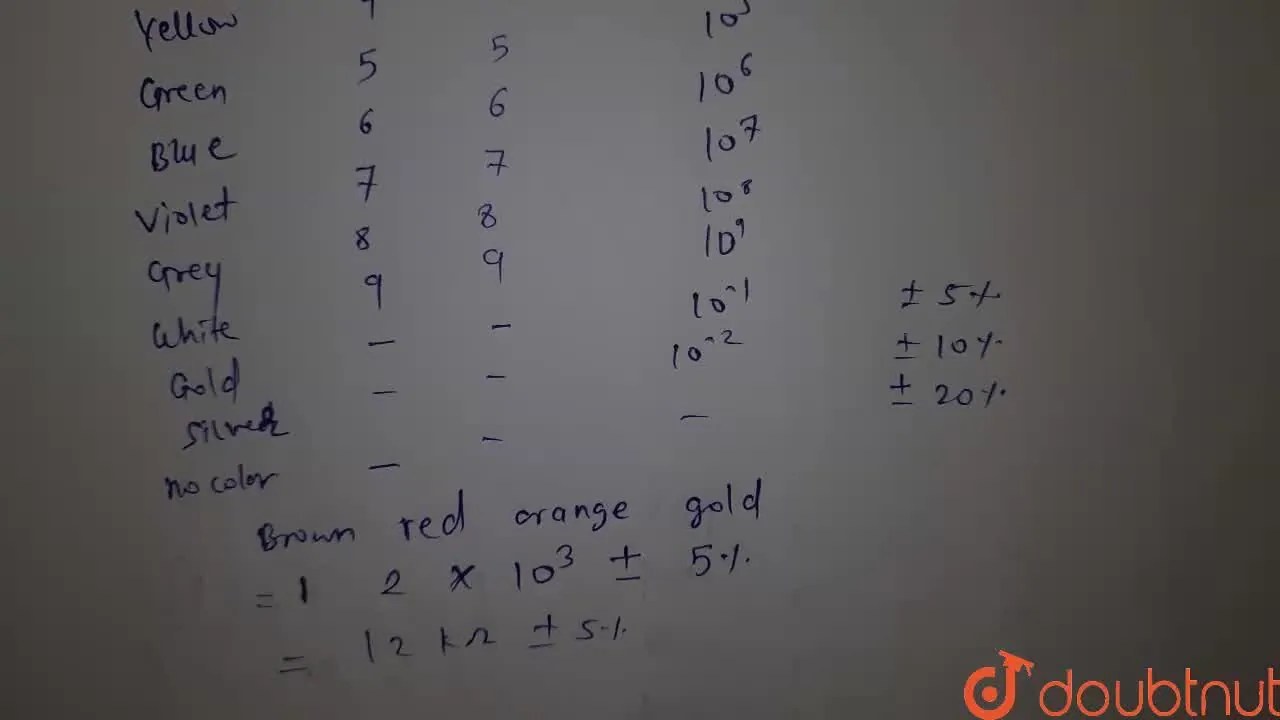 Yellow
Green 5 5 10⁵
Blue 6 6 10⁶
Violet 7 7 10⁷
Grey 8 8 10⁸
White 9 9 10⁹
Gold — — 10⁻¹ ± 5%
Silver — — 10⁻² ± 10%
no color — — — ± 20%
Brown red orange gold
= 1 2 × 10³ ± 5%
= 12 kΩ ± 5%
doubtnut